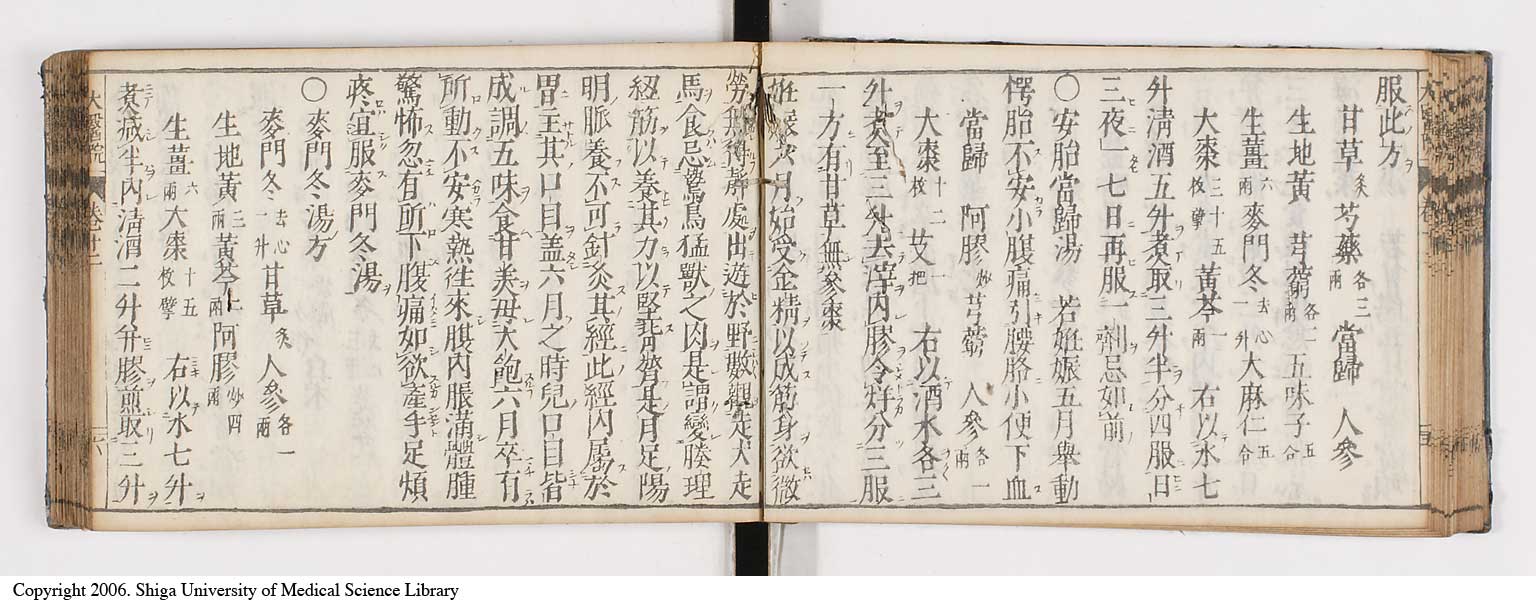 服此方
甘草炙 芍藥各三兩 當歸 人參
生地黃 芎藭各二兩 五味子五合
生薑六兩 麥門冬去心一升 大麻仁五合
大棗三十五枚擘 黃芩一兩 右以水七
升清酒五升煮取三升半分四服日
三夜一七日再服一劑忌如前
○安胎當歸湯 若姙娠五月舉動
愕胎不安小腹痛引腰胳小便下血
當歸 阿膠炒 芎藭 人參各一兩
大棗十二枚 艾一把 右以酒水各三
升煮至三升去滓內膠令烊分三服
一方有甘草無參棗
姙娠六月始受金精以成筋身欲微
勞無得靜處出遊於野數觀走犬走
馬食忌鷙鳥猛獸之肉是謂變腠理
紉筋以養其力以堅背膂是月足陽
明脈養不可針灸其經此經內屬於
胃主其口目盖六月之時兒口目皆
成調五味食甘美毋大飽六月卒有
所動不安寒熱往來腹內脹滿體腫
驚怖忽有所下腹痛如欲產手足煩
疼宜服麥門冬湯
○麥門冬湯方
麥門冬去心一升 甘草炙 人參各一兩
生地黃三兩 黃芩二兩 阿膠炒四兩
生薑六兩 大棗十五枚擘 右以水七升
煮減半內清酒二升并膠煎取三升
Copyright 2006. Shiga University of Medical Science Library